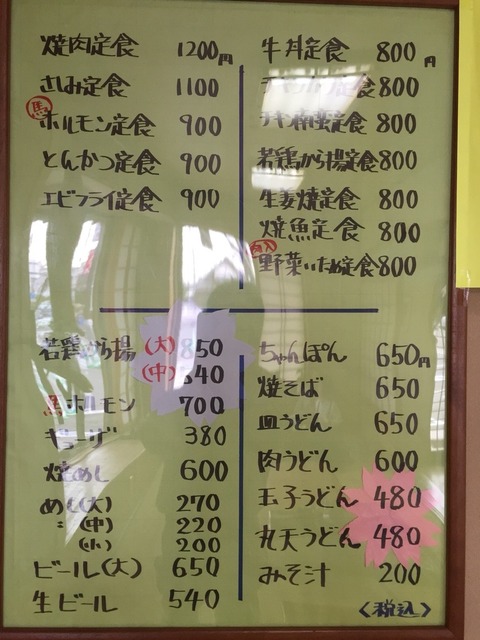 焼肉定食 1200円
さしみ定食 1100
馬
ホルモン定食 900
とんかつ定食 900
エビフライ定食 900
牛丼定食 800円
定食 800
チキン南蛮定食 800
若鶏から揚定食 800
生姜焼定食 800
焼魚定食 800
肉入
野菜いため定食 800
若鶏から揚 (大) 850
(中) 640
馬ホルモン 700
ギョーザ 380
焼めし 600
めし(大) 270
〃 (中) 220
(小) 200
ビール(大) 650
生ビール 540
ちゃんぽん 650円
焼そば 650
皿うどん 650
肉うどん 600
玉子うどん 480
丸天うどん 480
みそ汁 200
<税込>